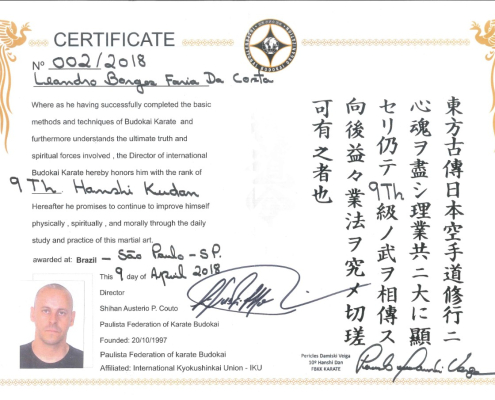 CERTIFICATE
Nº 002/2018
Leandro Borges Faria Da Costa
Where as he having successfully completed the basic
methods and techniques of Budokai Karate and
furthermore understands the ultimate truth and
spiritual forces involved , the Director of international
Budokai Karate hereby honors him with the rank of
9 Th Hanshi Kudan
Hereafter he promises to continue to improve himself
physically , spiritually , and morally through the daily
study and practice of this martial art.
awarded at: Brazil – São Paulo – S.P.
This 9 day of April 2018
Director
Shihan Austerio P. Couto
Paulista Federation of Karate Budokai
Founded: 20/10/1997
Paulista Federation of karate Budokai
Affiliated: International Kyokushinkai Union - IKU
東方古傳日本空手道修行ニ
心魂ヲ盡シ理業共ニ大に顯
セリ仍テ9Th級ノ武ヲ相傳ス
向後益々業法ヲ究メ切瑳
可有之者也
Pericles Damiski Veiga
10º Hanshi Dan
FBKK KARATE